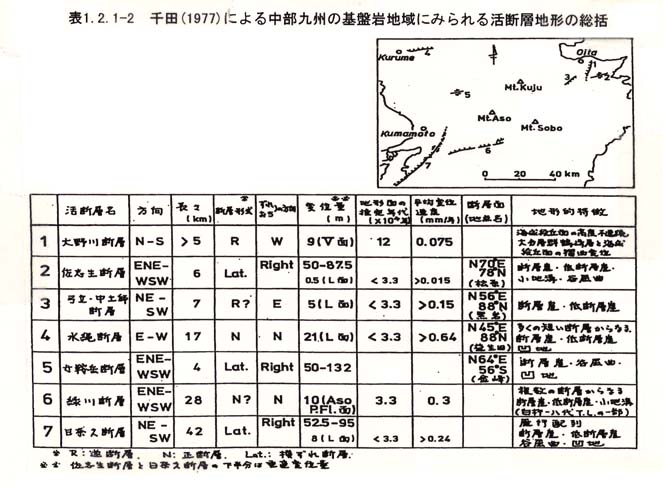 表1.2.1-2 千田(1977)による中部九州の基盤岩地域にみられる活断層地形の総括
Kurume
4
Oita
1
2
3
Mt.Kuju
5
Mt.Aso
Kumamoto
Mt.Sobo
6
7
0 20 40 km
活断層名 方向 長さ(km) 断層形式 変位量(m) 平均変位速度(mm/y) 断層面(地点名) 地形的特徴
1 大野川断層 N-S >5 R W 9(V面) 12 0.075
2 佐志生断層 ENE-WSW 6 Lat. Right 50-87.5 0.5(L面) <3.3 >0.015 N70°E 78°N 断層崖・低断層崖・小地溝・谷屈曲
3 NE-SW 7 R? E 5(L面) <3.3 >0.15 N56°E 88°N 断層崖・低断層崖
4 水縄断層 E-W 17 N N 21(L面) <3.3 >0.64 N45°E 88°N 多くの短い断層からなる、断層崖・低断層崖・凹地
5 ENE-WSW 4 Lat. Right 50-132 N64°E 56°S 断層崖・谷屈曲・凹地
6 緑川断層 ENE-WSW 28 N? N 10(Aso P.Fl.面) 3.3 0.3 複数の断層からなる 断層崖・低断層崖・小地溝 (臼杵-八代T.L.の一部)
7 日奈久断層 NE-SW 42 Lat. Right 52.5-95 8(L面) <3.3 >0.24 雁行配列 断層崖・低断層崖 谷屈曲・凹地
R:逆断層、 N:正断層、 Lat.:横ずれ断層.
佐志生断層と日奈久断層の下半分は垂直変位量